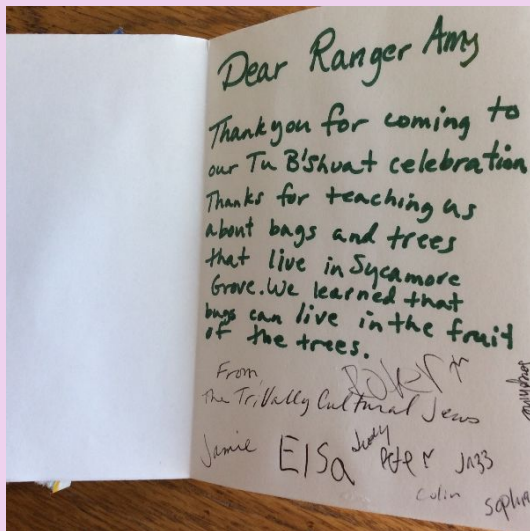 Dear Ranger Amy
Thank you for coming to
our Tu B'Shvat celebration
Thanks for teaching us
about bugs and trees
that live in Sycamore
Grove. We learned that
bugs can live in the fruit
of the trees.
From
The Tri Vally Cultural Jews
Jamie
Elsa
Judy
Peter
Jazz
Colin
Sophia